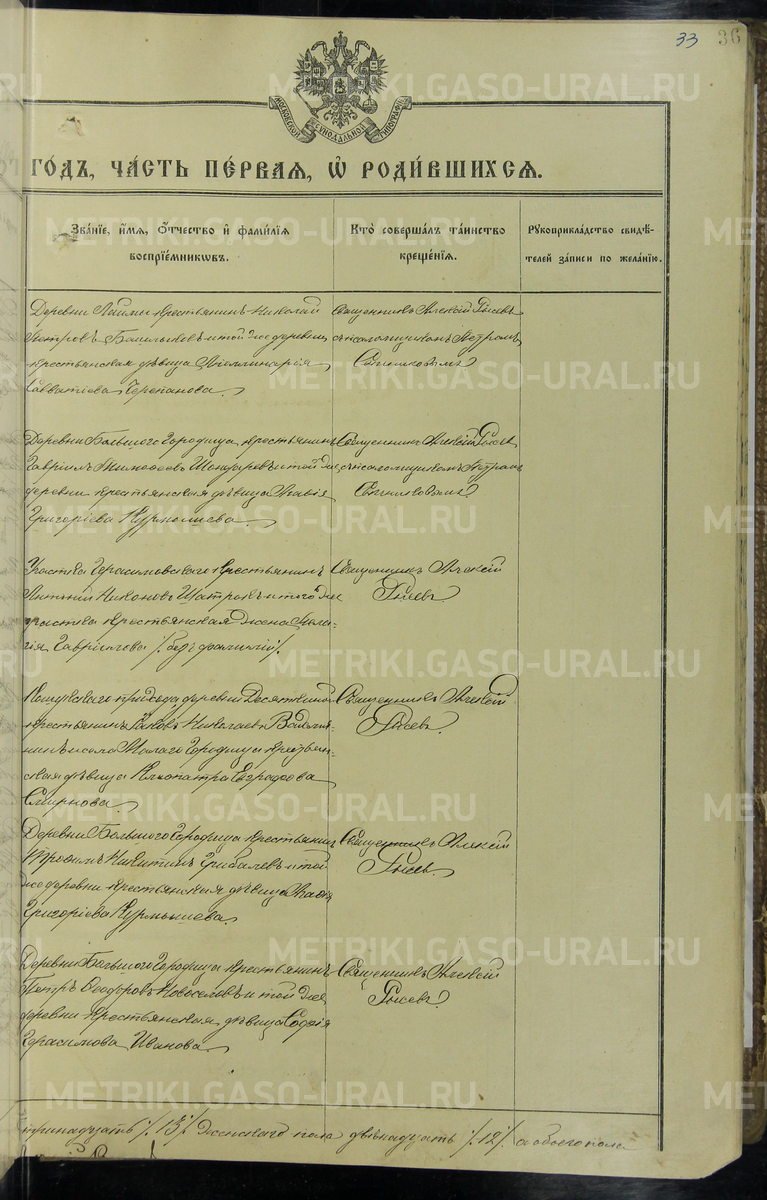 33 36
МОСКОВСКОЙ СѴНОДАЛЬНОЙ ТИПОГРАФІИ
ГОДЪ, ЧАСТЬ ПЕРВАЯ, Ѡ РОДИВШИХСЯ.
Званіе, имя, отчество и фамилія воспріемниковъ.
Кто совершалъ таинство крещенія.
Рукоприкладство свидѣтелей записи по желанію.
Деревни крестьянинъ Николай
Петровъ и той же деревни
крестьянская дѣвица Аполлинарія
Савватіева Черепанова.
Священникъ Алексій Рысевъ
съ псаломщикомъ Петромъ
Деревни Большого Городища крестьянинъ
Гавріилъ Тимофеевъ и той же
деревни крестьянская дѣвица Агавія
Григоріева Курмышева.
Священникъ Алексій Рысевъ
съ псаломщикомъ Петромъ
Участка Герасимовскаго крестьянинъ
Антоній Никоновъ и того же
участка крестьянская жена Пела-
гія Гавріилова /безъ фамиліи/.
Священникъ Алексій
Рысевъ
прихода деревни
крестьянинъ Іаковъ Николаевъ
и села Малаго Городища крестьян-
ская дѣвица Клеопатра Евграфова
Смирнова.
Священникъ Алексій
Рысевъ.
Деревни Большого Городища крестьянинъ
Трофимъ Никитинъ и той
же деревни крестьянская дѣвица Агавія
Григоріева Курмышева.
Священникъ Алексій
Рысевъ.
Деревни Большого Городища крестьянинъ
Петръ Ѳеодоровъ Новоселовъ и той же
деревни крестьянская дѣвица Софія
Герасимова Иванова.
Священникъ Алексій
Рысевъ.
тринадцать /13/ женскаго пола двѣнадцать /12/ а обоего пола
METRIKI.GASO-URAL.RU